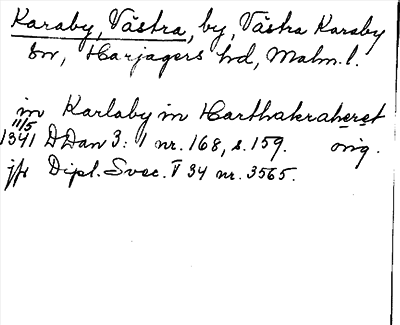 Karaby, Västra, by, Västra Karaby
sn, Harjagers hd, Malm.l.
in Karlaby in Harthakraheret
11/5
1341 DDan 3:1 nr. 168, s. 159. orig.
jfr Dipl. Svec. V 34 nr. 3565.